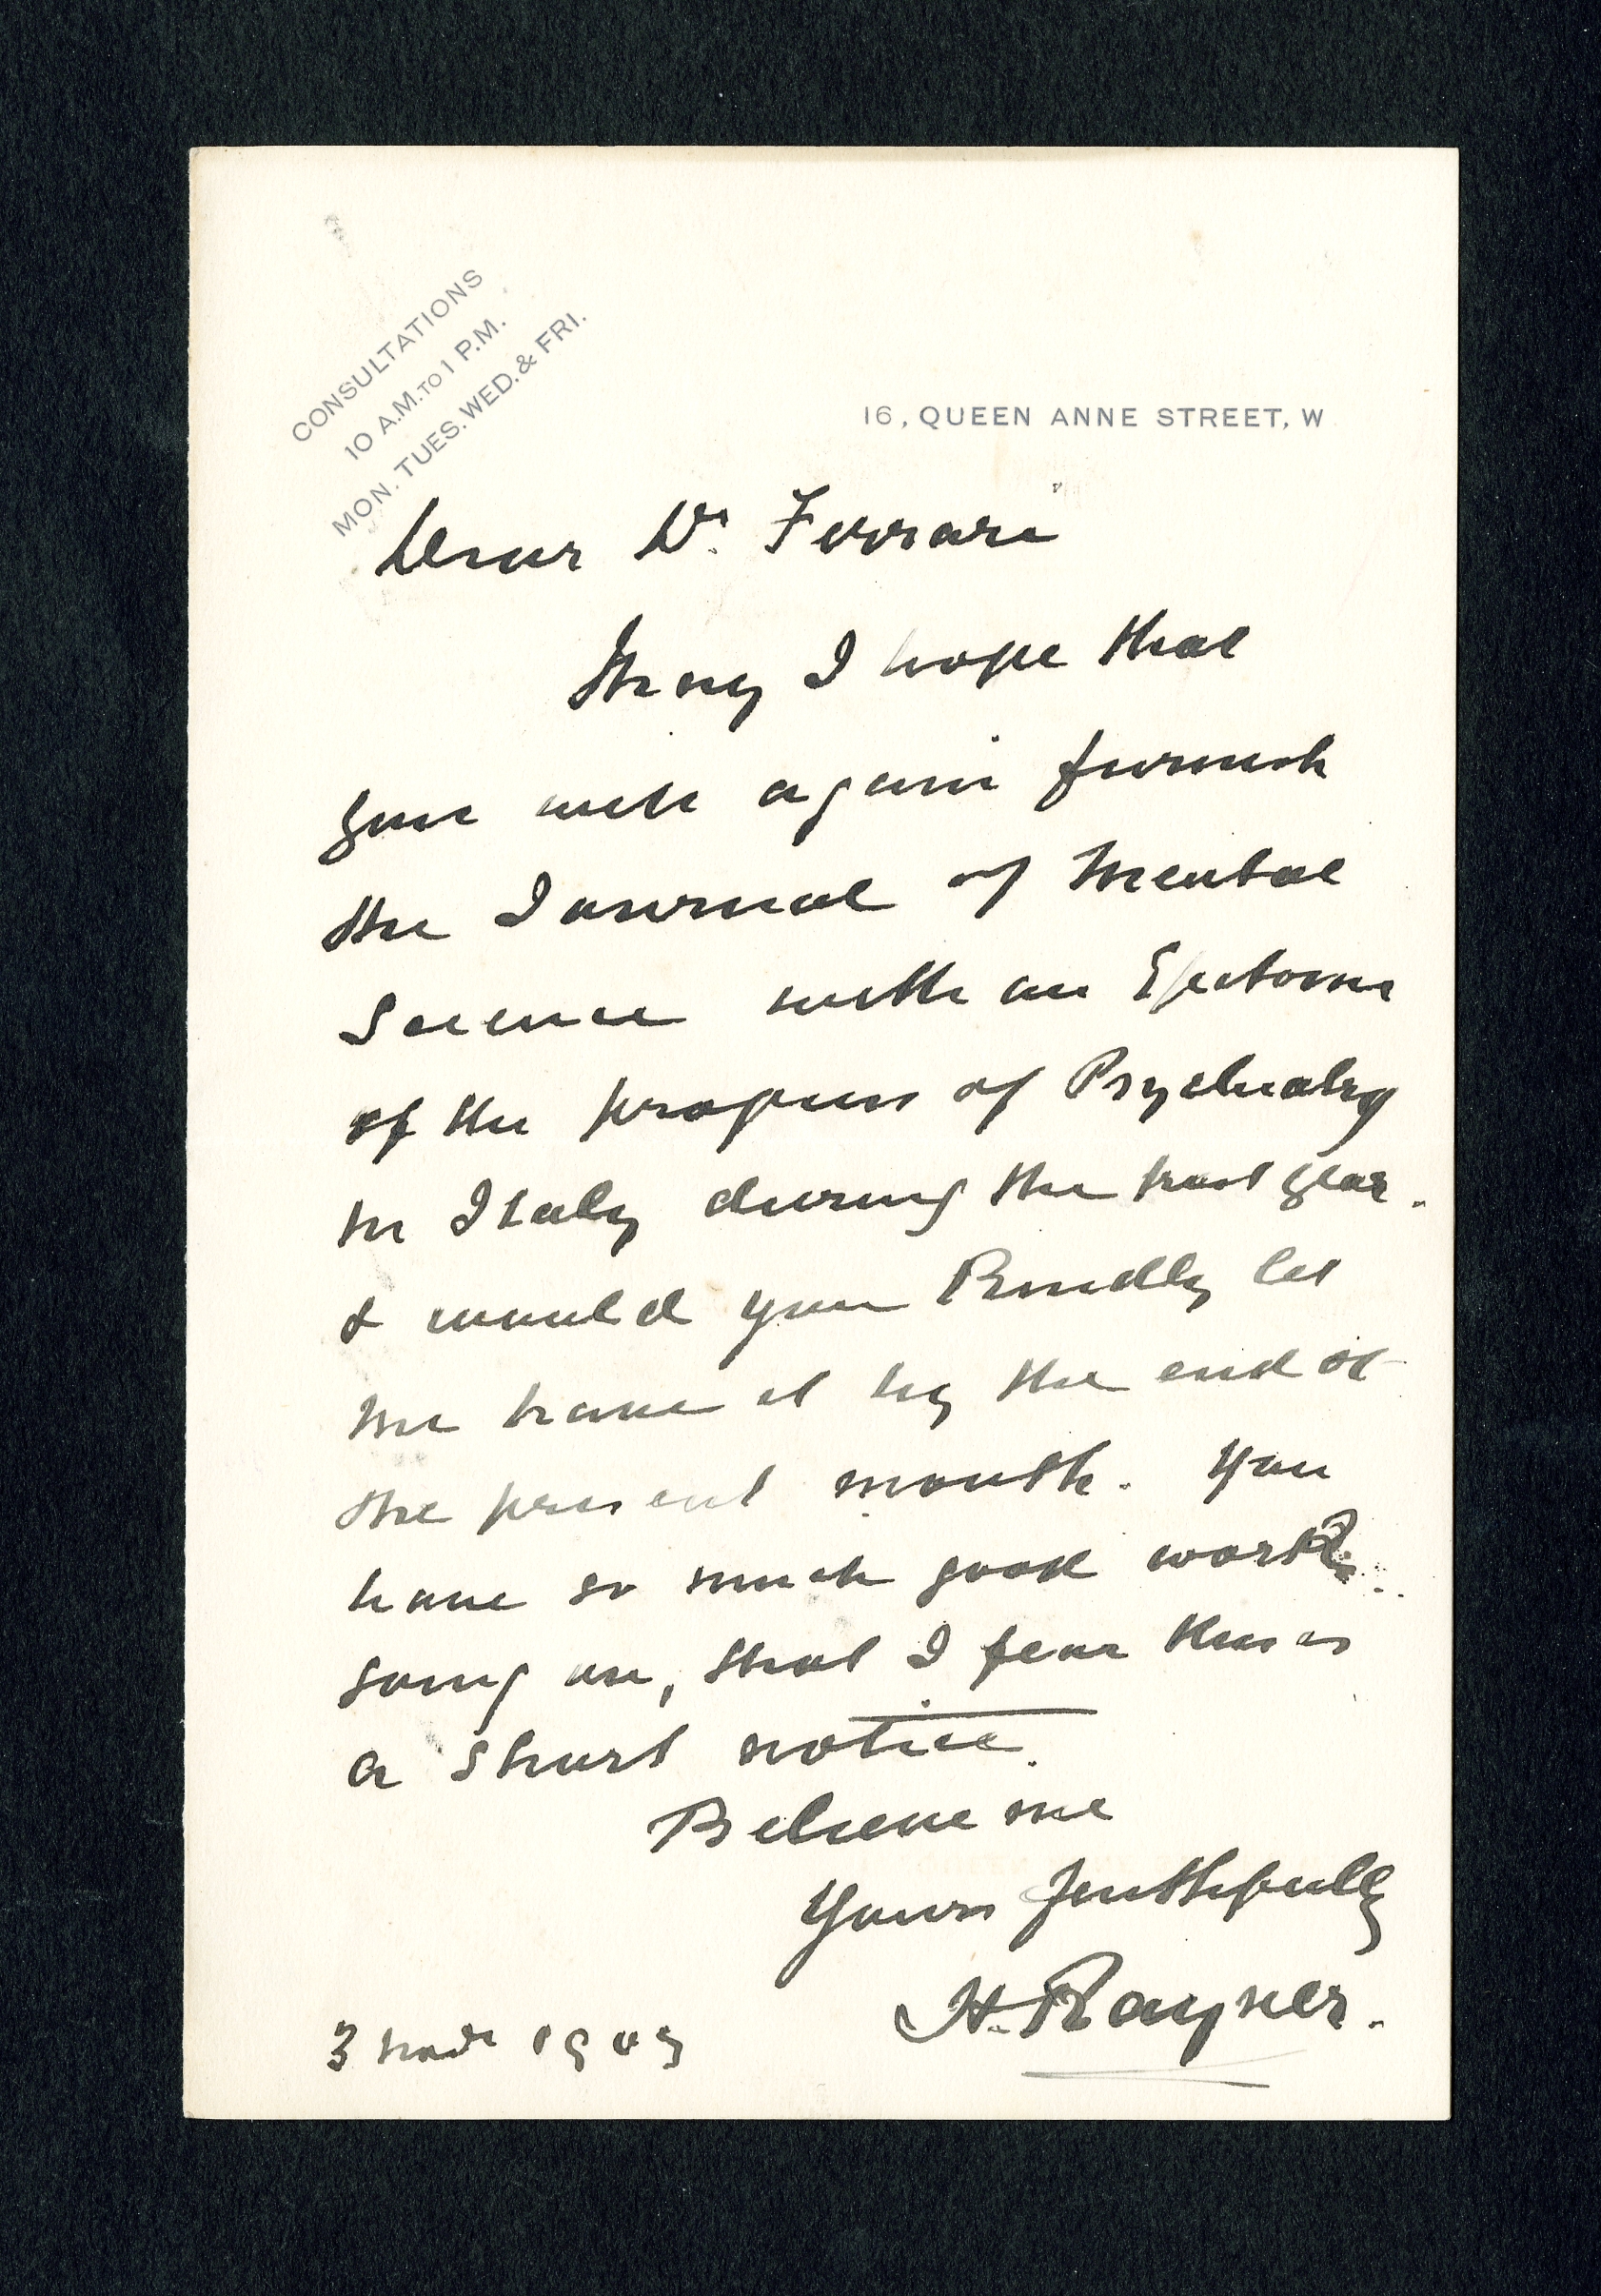 CONSULTATIONS
10 A.M. TO 1 P.M.
MON. TUES. WED. & FRI.
16, QUEEN ANNE STREET, W
Dear Dr. Ferrari
May I hope that
you will again furnish
the Journal of Mental
Science with an Epitome
of the progress of Psychiatry
in Italy during the past year.
& would you kindly let
me have it by the end of
the present month. You
have so much good work
going on, that I fear this is
a short notice.
Believe me
Yours faithfully
H. Rayner.
3 1903